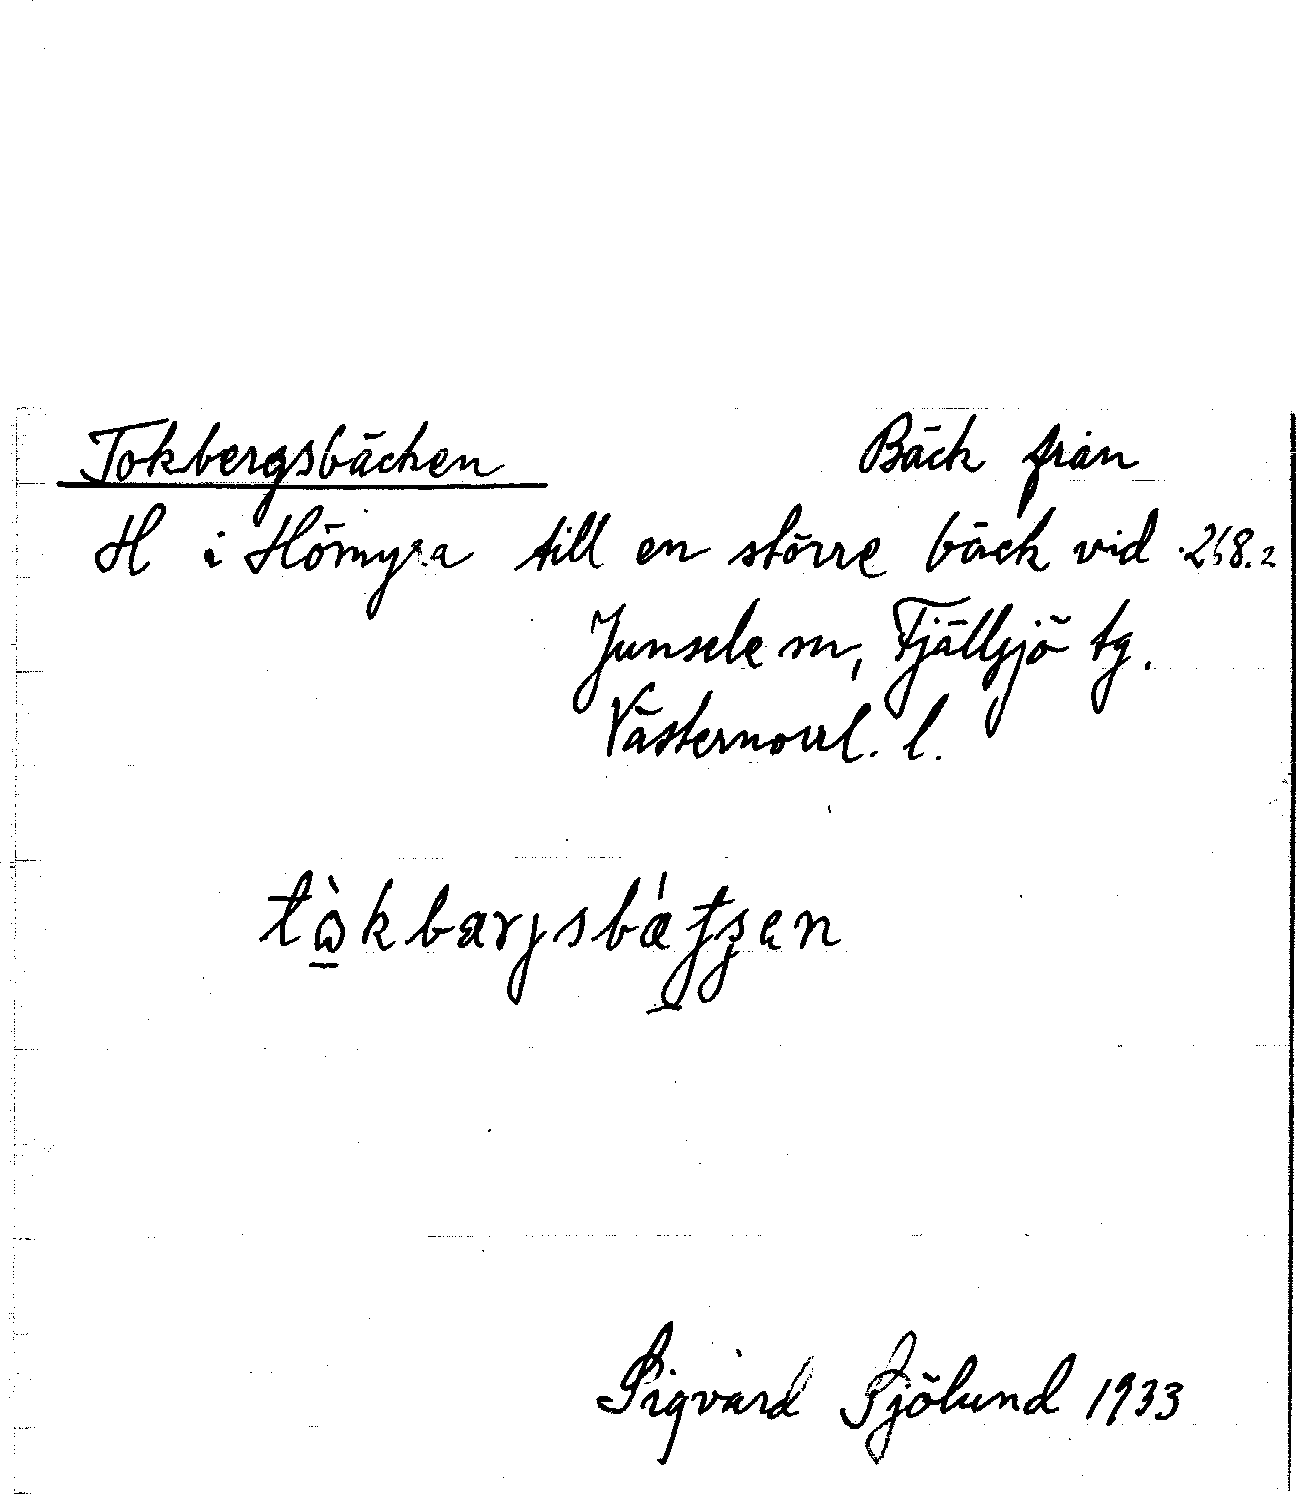 Tokbergsbäcken Bäck från
H i Hömyra till en större bäck vid 268.2
Junsele sn, Fjällsjö tg.
Västernorrl. l.
Sigvard Sjölund 1933